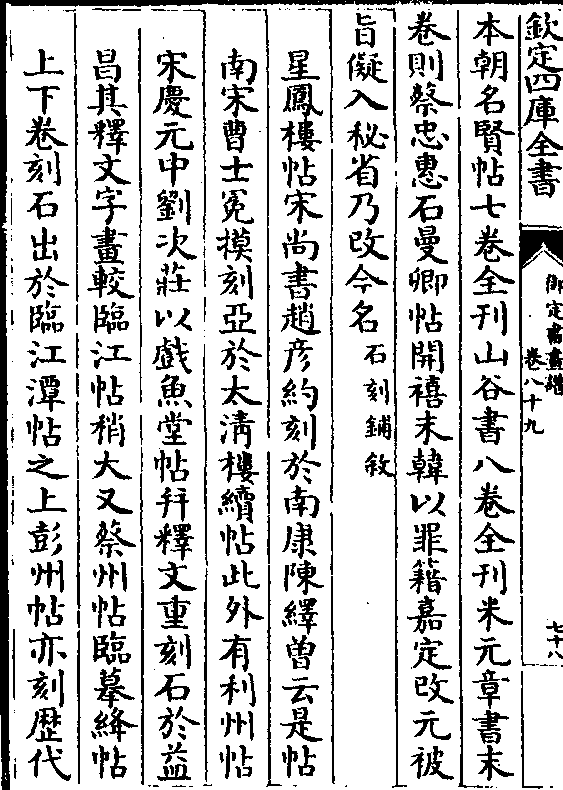 欽定四庫全書
御定書畫譜
卷八十九
七十八
本朝名賢帖七卷全刊山谷書八卷全刊米元章書末
卷則蔡忠惠石曼卿帖開禧末韓以罪籍嘉定改元被
旨儗入秘省乃改今名石刻鋪敘
星鳳樓帖宋尚書趙彥約刻於南康陳繹曾云是帖
南宋曹士冕摸刻亞於太清樓續帖此外有利州帖
宋慶元中劉次莊以戲魚堂帖幷釋文重刻石於益
昌其釋文字畫較臨江帖稍大又蔡州帖臨摹絳帖
上下卷刻石出於臨江潭帖之上彭州帖亦刻歷代